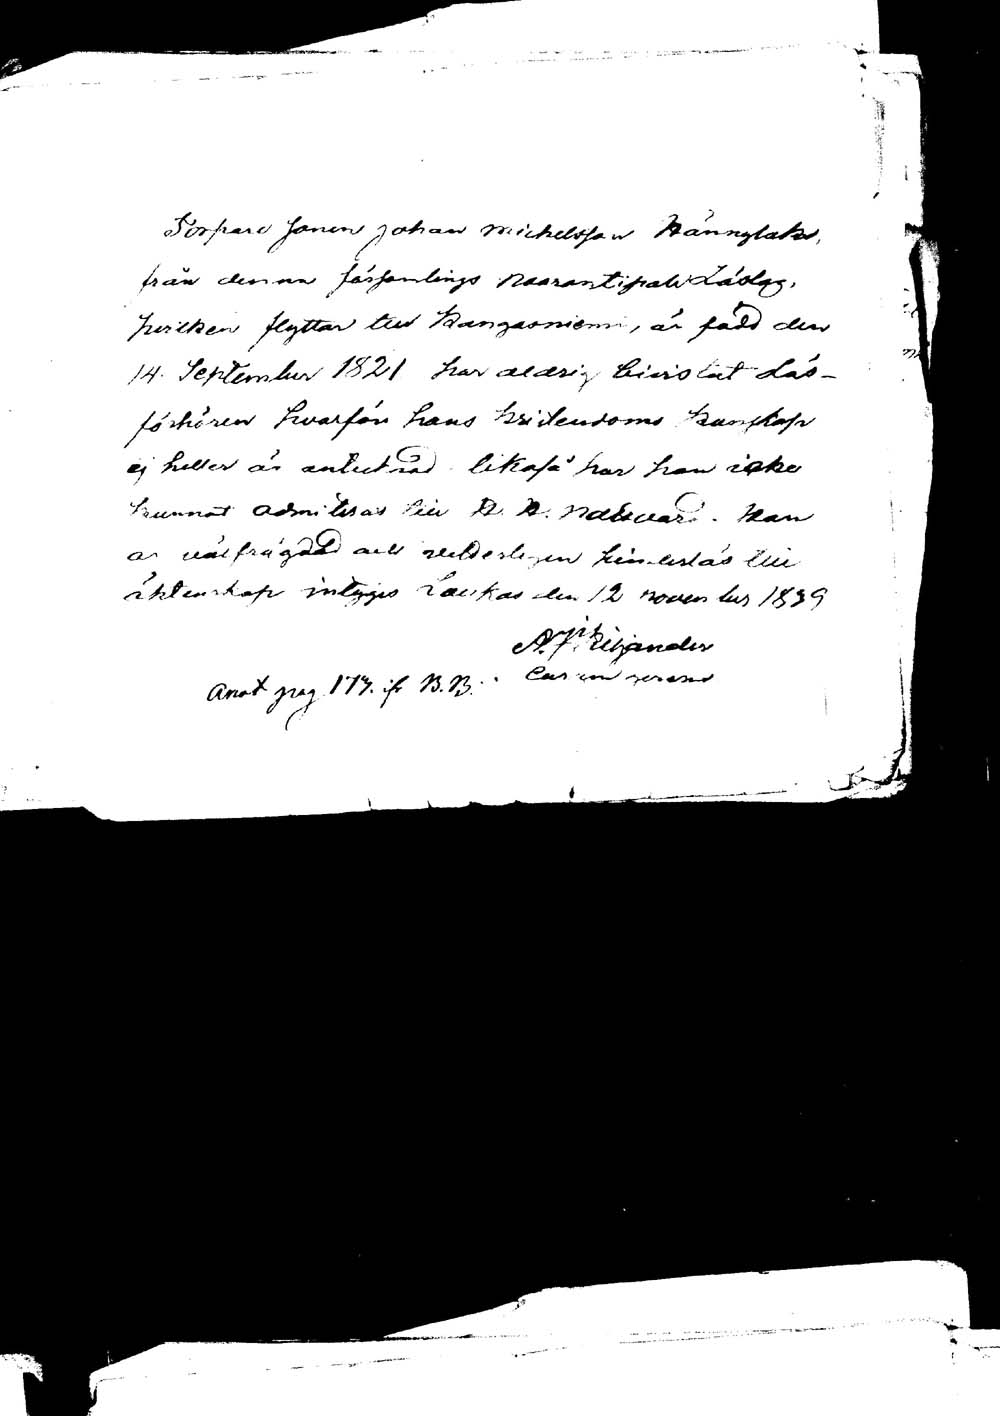 Torpare Sonen Johan Michelsson Hännylake,
från denna församlings Naarantipale Läslag,
hvilken flyttar till Kangasniemi, är född den
14. September 1821 har aldrig bivistat Läs-
förhören hvarför hans Kristendoms Kunskap
ej heller är antecknad likaså har han icke
kunnat admitteras till H. H. Nattvard. Han
är välfrägdad och veterligen hinderlös till
äktenskap intygas Laukas den 12 November 1839
A. F. Kiljander
Anot pag 173. if B.B.